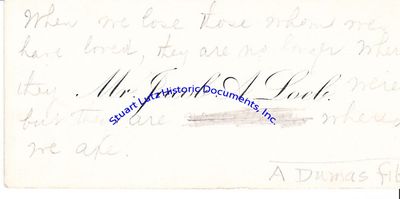 When we lose those whom we
have loved, they are no longer where
they were
Mr. Jacob A. Loeb.
Stuart Lutz Historic Documents, Inc.
but they are where
we are.
A Dumas fils